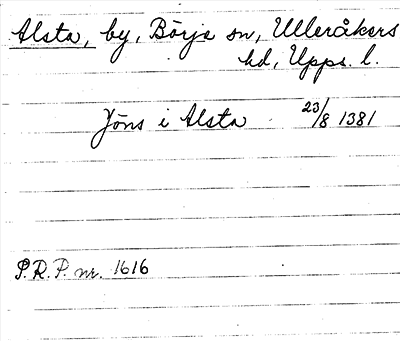 Alsta, by, Börje sn, Ulleråkers
hd, Upps. l.
Jöns i Alsta 23/8 1381
P.R.P. nr. 1616